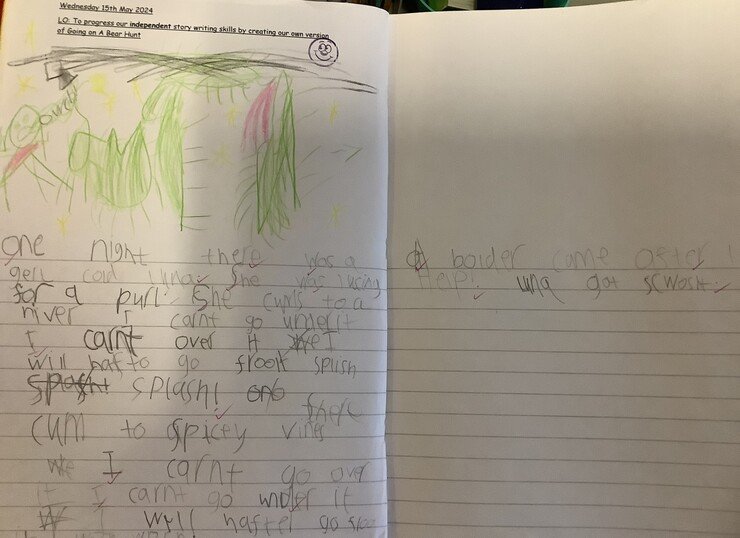 Wednesday 15th May 2024
LO: To progress our independent story writing skills by creating our own version
of Going on A Bear Hunt
One night there was a
gell cold luna. She was lucing
for a purl. She cums to a
river I carnt go underit
I carnt over it we I
will hafto go froo it splish
splasht splash! and
there
cum to spicey vines
We I carnt go over
it I carnt go under it
W I will hafter go froo
a bolder came after!
Help! luna got scwosht.